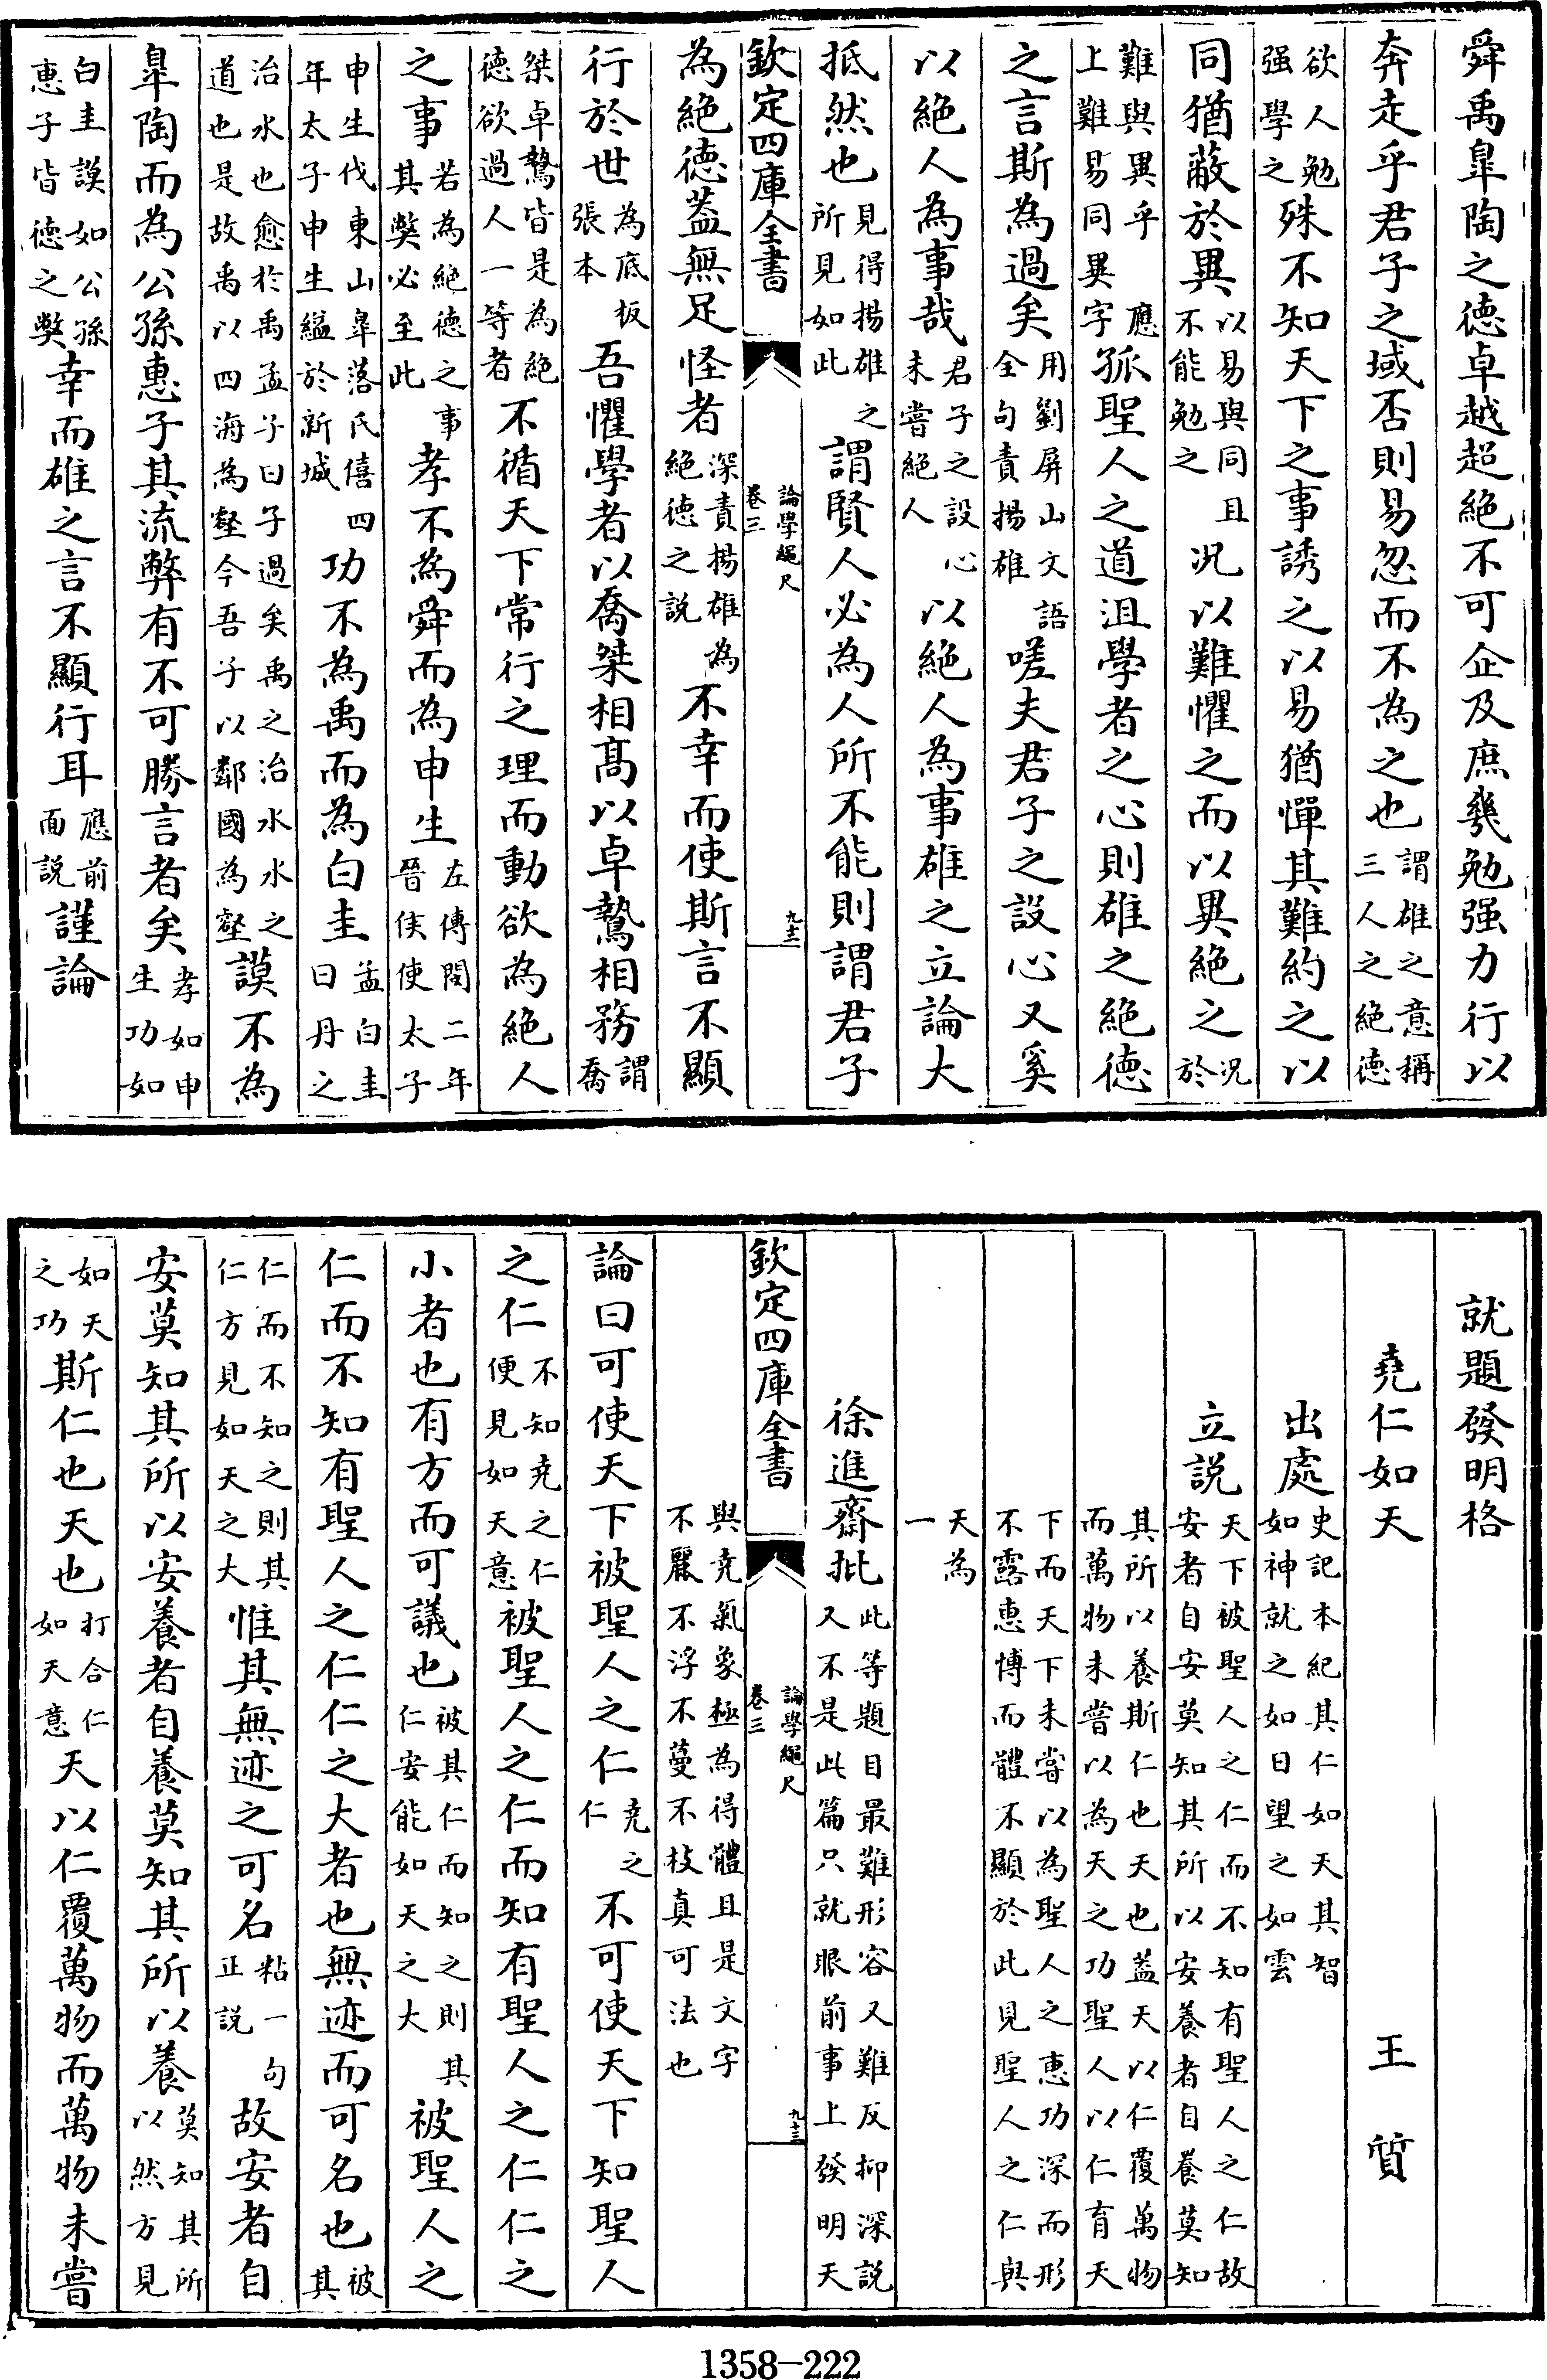 舜禹臯陶之徳卓越超絶不可企及庶幾勉强力行以
奔走乎君子之域否則易忽而不為之也謂雄之意稱三人之絶徳
欲人勉强學之殊不知天下之事誘之以易猶憚其難約之以
同猶蔽於異以易與同且不能勉之况以難懼之而以異絶之况於
難與異乎上難易同異字應孤聖人之道沮學者之心則雄之絶徳
之言斯為過矣用劉屏山文語全句責揚雄嗟夫君子之設心又奚
以絶人為事哉君子之設心未嘗絶人以絶人為事雄之立論大
抵然也見得揚雄之所見如此謂賢人必為人所不能則謂君子
欽定四庫全書
論學繩尺
卷三
九十三
為絶徳葢無足怪者深責揚雄為絶徳之説不幸而使斯言不顯
行於世為底板張本吾懼學者以喬桀相髙以卓鷙相務謂喬
桀卓鷙皆是為絶徳欲過人一等者不循天下常行之理而動欲為絶人
之事若為絶徳之事其獘必至此孝不為舜而為申生左傳閔二年晉侯使太子
申生伐東山臯落氏僖四年太子申生縊於新城功不為禹而為白圭孟白圭曰丹之
治水也愈於禹孟子曰子過矣禹之治水水之道也是故禹以四海為壑今吾子以鄰國為壑謨不為
臯陶而為公孫惠子其流弊有不可勝言者矣孝如申生功如
白圭謨如公孫惠子皆徳之獘幸而雄之言不顯行耳應前面説謹論
就題發明格
堯仁如天　王質
出處史記本紀其仁如天其智如神就之如日望之如雲
立説天下被聖人之仁而不知有聖人之仁故安者自安莫知其所以安養者自養莫知
其所以養斯仁也天也蓋天以仁覆萬物而萬物未嘗以為天之功聖人以仁育天
下而天下未嘗以為聖人之惠功深而形不露惠博而體不顯於此見聖人之仁與
天為一
徐進齋批此等題目最難形容又難反抑深説又不是此篇只就眼前事上發明天
欽定四庫全書
論學繩尺
卷三
九十三
與堯氣象極為得體且是文字不麗不浮不蔓不枝真可法也
論曰可使天下被聖人之仁堯之仁不可使天下知聖人
之仁不知堯之仁便見如天意被聖人之仁而知有聖人之仁仁之
小者也有方而可議也被其仁而知之則其仁安能如天之大被聖人之
仁而不知有聖人之仁仁之大者也無迹而可名也被其
仁而不知之則其仁方見如天之大惟其無迹之可名粘一句正説故安者自
安莫知其所以安養者自養莫知其所以養莫知其所以然方見
如天之功斯仁也天也打合仁如天意天以仁覆萬物而萬物未嘗
1358-222